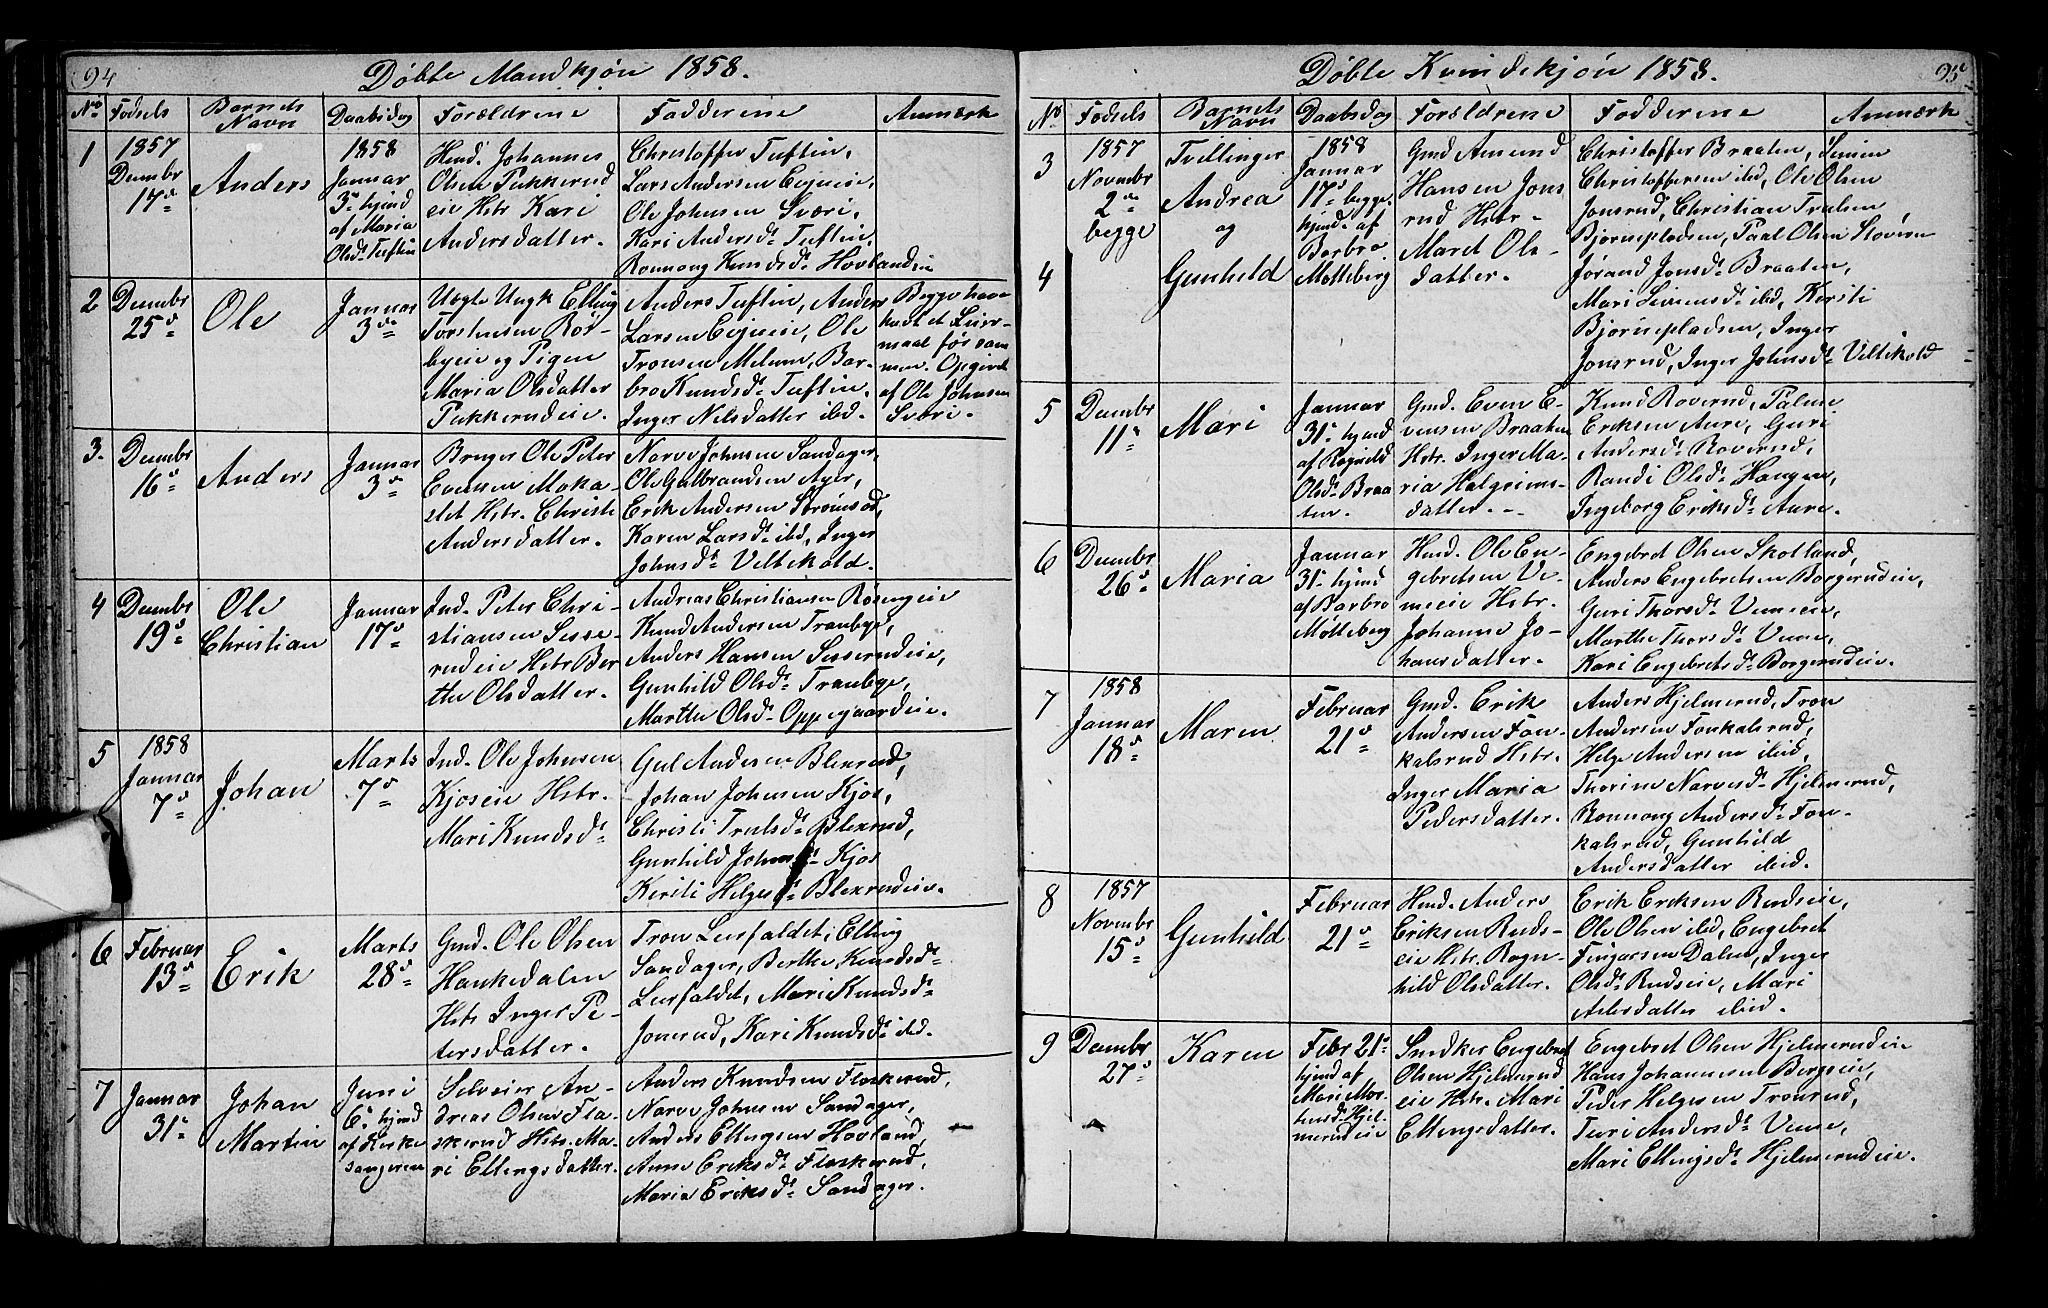 94
Döbte Mandkjön 1858.
No. Fodsels Barnets Navn Daabsdag Forældrene Fadderene Anmærk
1
1857
Decembr
17de
Anders
1858
Januar
3de hjmd
af Maria
Olsdr Tuftin
Hmd. Johannes
Olsen Pukkerud
eie Hstr Kari
Andersdatter.
Christoffer Tuftin,
Lars Andersen
Ole Johnsen Sværi,
Kari Andersdr Tuftin,
Ronnong Knudsdr Hovlandeie
2
Decembr
25de
Ole
Januar
3de
Uægte Ungk Elling
Torstensen Rör-
byeie og Pigen
Maria Olsdatter
Pukkerudeie.
Anders Tuftin, Anders
Larsen Ole
Tronsen Melum, Bar-
bro Knudsdr Tuftin,
Inger Nilsdatter ibid.
Begge have
havt et Leier-
maal för sam
men. Opgivet
af Ole Johnsen
Svöri.
3.
Decembr
16de
Anders
Januar
3de
Bruger Ole Peter
Evensen Moka-
slet Hstr. Christi
Andersdatter.
Narve Johnsen Sandager,
Ole Gulbrandsen Ager,
Erik Andersen Strömsod,
Karen Larsdr ibid, Inger
Johnsdr Veltekold.
4
Decembr
19de
Ole
Christian
Januar
17de
Ind. Peter Chri-
stiansen Sesse-
rudeie Hstr Ber
the Olsdatter.
Andreas Christiansen Rösengeie
Knud Andersen Tranbye,
Anders Hansen Sesserudeie,
Gunhild Olsdr Tranbye,
Marthe Olsdr Oppegaardeie.
5
1858
Januar
7de
Johan
Marts
7de
Ind. Ole Johnsen
Kjoseie Hstr.
Mari Knudsdr
Gul Andersen Blexrud,
Johan Johnsen Kjos,
Christi Trulsdr Blexrud,
Gunhild Johnsdr Kjos
Kersti Helgesdr Blexrudeie.
6
Februar
13de
Erik
Marts
28de
Gmd. Ole Olsen
Haukedalen
Hstr Inger Pe-
tersdatter.
Tron Leerfaldet, Elling
Sandager, Berthe Knudsdr
Leerfaldet, Mari Knudsdr
Jonsrud, Kari Knudsdr ibd.
7
Januar
31te
Johan
Martin
Juni
6te hjmd
af Kirke
sangeren
Selveier An-
dreas Olsen Fla-
skerud Hstr. Ma-
ri Ellingsdatter.
Anders Knudsen Flaskerud,
Narve Johnsen Sandager,
Anders Ellingsen Hovland,
Anne Eriksdr Flaskerud,
Maria Eriksdr Sandager.
Döbte Kvindekjön 1858.
95
No Fodsels Barnets Navn Daabsdag Forældrene Fadderene Anmærk
3
4
1857
Novembr
2den
begge
Tvillinger
Andrea
og
Gunhild
1858
Januar
17de begge
hjmd. af
Barbro
Mölleberg
Gmd Amund
Hansen Jons
rud Hstr-
Maret Ols-
datter.
Christoffer Braaten, Simen
Christoffersen ibid, Ole Olsen
Jonsrud, Christian Trulsen
Björnepladsen, Paal Olsen Stövern
Jörand Jonsdr Braaten,
Mari Simensdr ibid, Kersti
Björnepladsen, Inger
Jonsrud, Inger Johnsdr Veltekold
5
Decembr
11te
Mari
Januar
31te hjmd
af Ragnild
Olsdr Braa
ten.
Gmd. Even E-
vensen Braaten
Hstr. Inger Ma-
ria Halgrims-
datter.
Knud Roverud, Palme
Eriksen Aure, Guri
Andersdr Roverud,
Randi Olsdr Haugen,
Ingeborg Eriksdr Aure.
6
Decembr
26de
Maria
Januar
31te hjmd
af Barbro
Mölleberg
Hmd. Ole En-
gebretsen Ve-
meeie Hstr.
Johanne Jo-
hansdatter.
Engebret Olsen Skotland,
Anders Engebretsen Borgerudeie,
Guri Thorsdr Vemeeie,
Marthe Thorsdr Veme,
Kari Engebretsdr Borgerudeie.
7
1858
Januar
18de
Maren
Februar
21de
Gmd. Erik
Andersen Fon-
kalsrud Hstr.
Inger Maria
Pedersdatter.
Anders Hjelmerud, Tron
Andersen Fonkalsrud,
Helge Andersen ibid,
Thorine Narvesdr Hjelmerud,
Ronnong Andersdr Fon-
kalsrud, Gunhild
Andersdatter ibid.
8
1857
Novembr
15de
Gunhild
Februar
21de
Hmd. Anders
Eriksen Ruds-
eie Hstr. Ragn-
hild Olsdatter.
Erik Eriksen Rudseie,
Ole Olsen ibid, Engebret
Fingarsen Dalen, Inger
Olsdr Rudseie, Mari
Aslesdatter ibid.
9
Decembr
27de
Karen
Febr 21de
hjmd af
Mari Mor-
tensdr Hjel-
merudeie
Snedker Engebret
Olsen Hjelmerud
eie Hstr. Mari
Ellingsdatter.
Engebret Olsen Hjelmerudeie
Hans Johannesen Bergseie,
Peder Helgesen Tronrud,
Turi Andersdr Veme,
Mari Ellingsdr Hjelmerudeie.